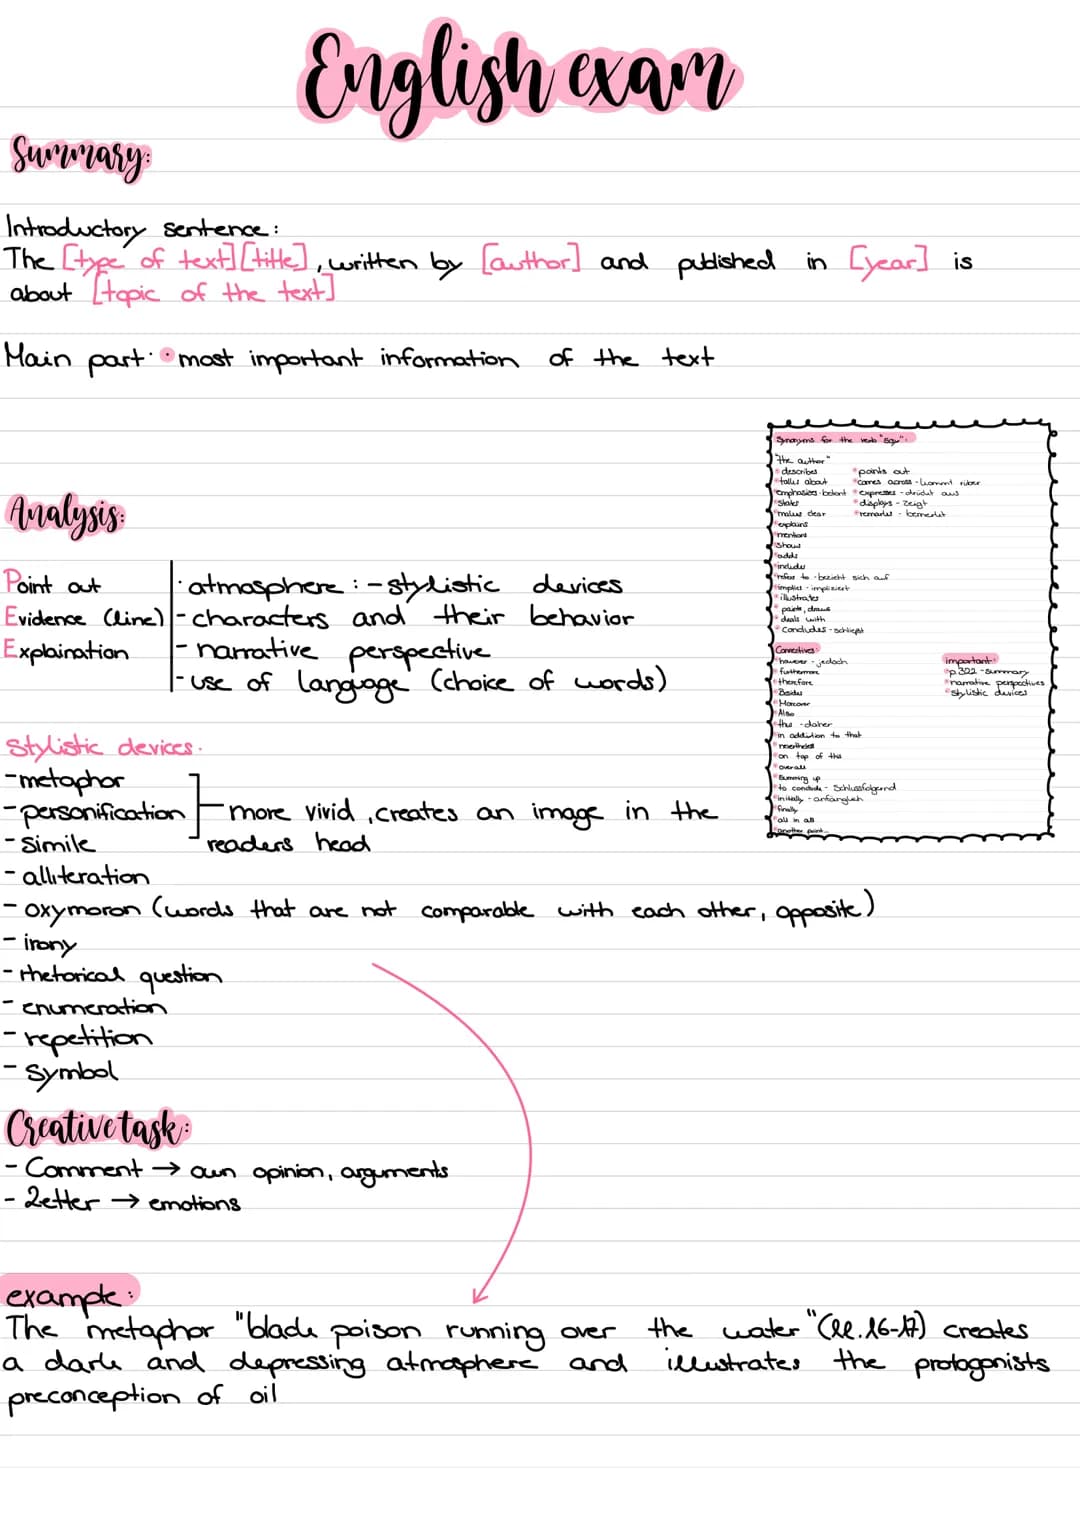 English exam
Summary:
Introductory sentence:
The [type of text] [title], written by [author] and published in [year] is
about [topic of the text]
Main part: • most important information of the text
Analysis:
Point out
Evidence (line)
Explaination
• atmosphere: - stylistic devices
- characters and their behavior
- narrative perspective
- use of language (choice of words)
Stylistic devices:
- metaphor
- personification
- Simile
more vivid, creates an image in the
readers head
- alliteration
- oxymoron (words that are not comparable with each other, opposite)
- irony
- rhetorical question
- enumeration
- repetition
- Symbol
Creative task:
- Comment → own opinion, arguments
- Letter → emotions
example:
The metaphor "black poison running over the water" (ll. 16-17) creates
a dark and depressing atmosphere and illustrates the protagonists
preconception of oil
Synonyms for the verb "say":
"the author"
• describes
• talks about
• emphasizes - betont
• states
• makes clear
• explains
• mentions
• shows
• adds
• includes
• refers to - bezieht sich auf
• implies - impliziert
• illustrates
• paints, draws
• deals with
• concludes - schließt
• points out
• comes across - kommt rüber
• expresses - drückt aus
• displays - zeigt
• remarks - bemerkt
Connectives:
• however - jedoch
• furthermore
• therefore
• Besides
• Moreover
• Also
• thus - daher
• in addition to that
• nevertheless
• on top of this
• overall
• Summing up
• to conclude - Schlussfolgernd
• initially - anfänglich
• finally
• all in all
• another point...
important:
• p. 322 - Summary
• narrative perspectives
• stylistic devices